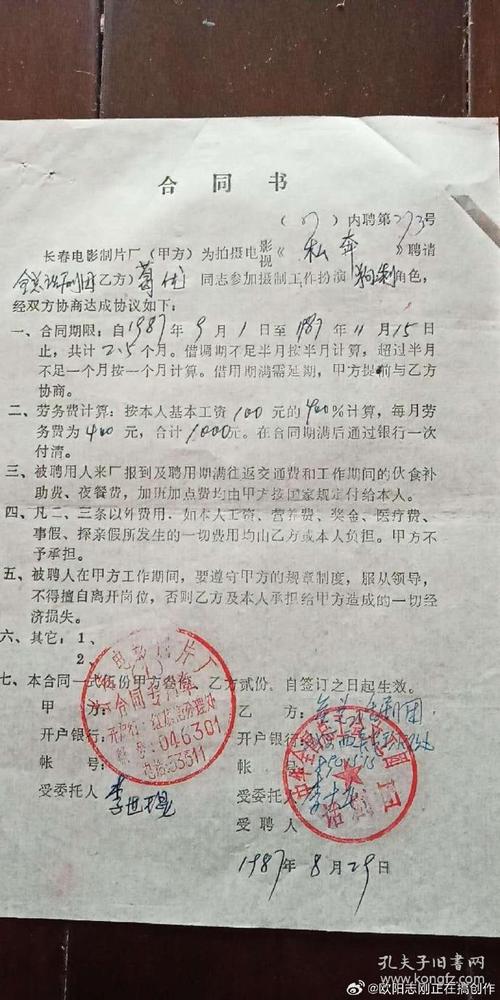 合同书
（87）内聘第273号
长春电影制片厂（甲方）为拍摄电影视《私奔》聘请
全总话剧团（乙方）葛优同志参加摄制工作扮演角色，
经双方协商达成协议如下：
一、合同期限：自1987年9月1日至1987年11月15日
止，共计2.5个月。借调期不足半月按半月计算，超过半月
不足一个月按一个月计算。借用期满需延期，甲方提前与乙方
协商。
二、劳务费计算：按本人基本工资100元的400%计算，每月劳
务费为400元，合计1000元。在合同期满后通过银行一次
付清。
三、被聘用人来厂报到及聘用期满往返交通费和工作期间的伙食补
助费、夜餐费，加班加点费均由甲方按国家规定付给本人。
四、凡二、三条以外费用，如本人工资、营养费、奖金、医疗费、
事假、探亲假所发生的一切费用均由乙方或本人负担。甲方不
予承担。
五、被聘人在甲方工作期间，要遵守甲方的规章制度，服从领导，
不得擅自离开岗位，否则乙方及本人承担给甲方造成的一切经
济损失。
六、其它：1、
2、
七、本合同一式伍份甲方叁份，乙方贰份，自签订之日起生效。
甲方：
乙方：全总话剧团
开户银行：
开户银行：
帐号：
帐号：
受委托人：李世
受委托人：李
受聘人
1987年8月29日
电影制片厂
合同专用章
开户行：红旗街办理处
帐号：046301
电话：53311
中华全国总工会
话剧团
孔夫子旧书网
www.kongfz.com
@欧阳志刚正在搞创作